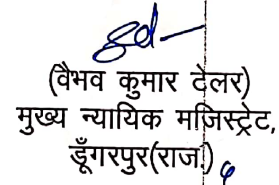 sd-
(वैभव कुमार टेलर)
मुख्य न्यायिक मजिस्ट्रेट,
डूँगरपुर(राज.)